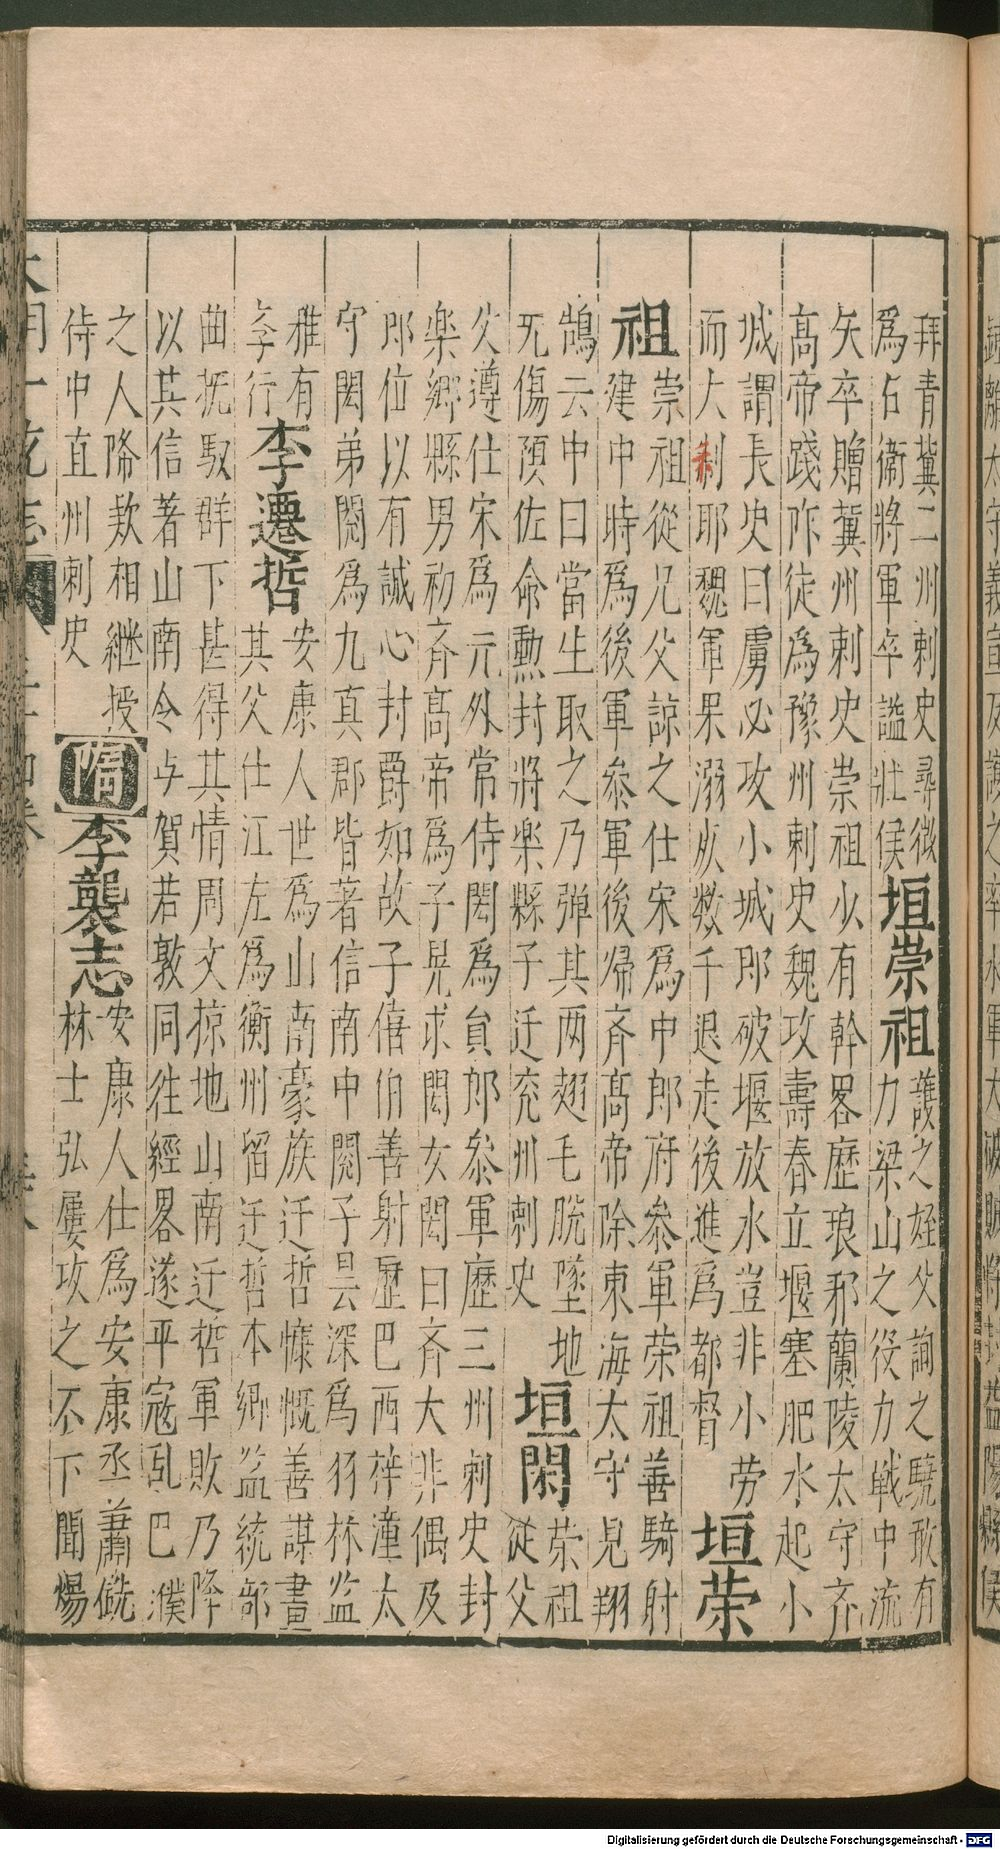 拜青冀二州刺史尋徵
爲右衞將軍卒謚壯侯
垣崇祖
護之姪父詢之驍敢有
力梁山之役力戰中流
矢卒贈冀州刺史崇祖少有幹畧歷琅邪蘭陵太守齐
高帝踐阼徒爲豫州刺史魏攻壽春立堰塞肥水起小
城謂長史曰虜必攻小城即破堰放水豈非小劳
而大利耶魏軍果溺死数千退走後進爲都督
垣荣
祖
崇祖從兄父諒之仕宋爲中郎府叅軍荣祖善騎射
建中時爲後軍叅軍後帰齐高帝除東海太守見翔
鵠云中曰當生取之乃弹其两翅毛脱墜地
死傷預佐命勲封將楽縣子迁兖州刺史
垣閎
荣祖
從父
父遵仕宋爲元外常侍閎爲貟郎叅軍歷三州刺史封
楽鄉縣男初齐高帝爲子晃求閎女閎曰齐大非偶及
即位以有誠心封爵如故子僖伯善射歷巴西梓潼太
守閎弟閱爲九真郡皆著信南中閱子曇深爲羽林监
雅有
李行
李遷哲
安康人世爲山南豪族迁哲慷慨善謀畫
其父仕江左爲衡州留迁哲本鄉监統部
曲抚馭群下甚得其情周文掠地山南迁哲軍敗乃降
以其信著山南令与賀若敦同往經畧遂平寇乱巴濮
之人降欵相継授
侍中直州刺史
隋
李襲志
安康人仕爲安康丞蕭銑
林士弘屢攻之不下聞煬
Digitalisierung gefördert durch die Deutsche Forschungsgemeinschaft - DFG